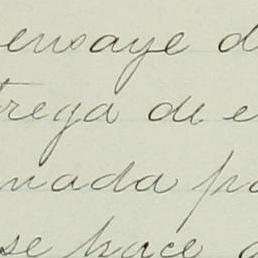 ensaye d
trega de e
nada po
se hace a